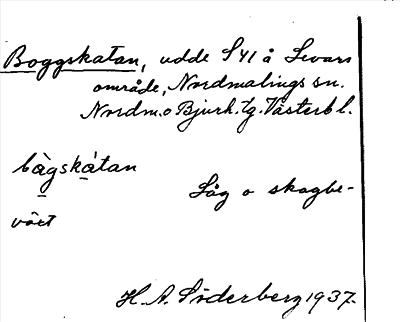 Boggskatan, udde S41 å Levars
område, Nordmalings sn.
Nordm. o Bjurh. tg. Västerb l.
bågskàtan
Låg o skogbe-
växt
H. A. Söderberg 1937.